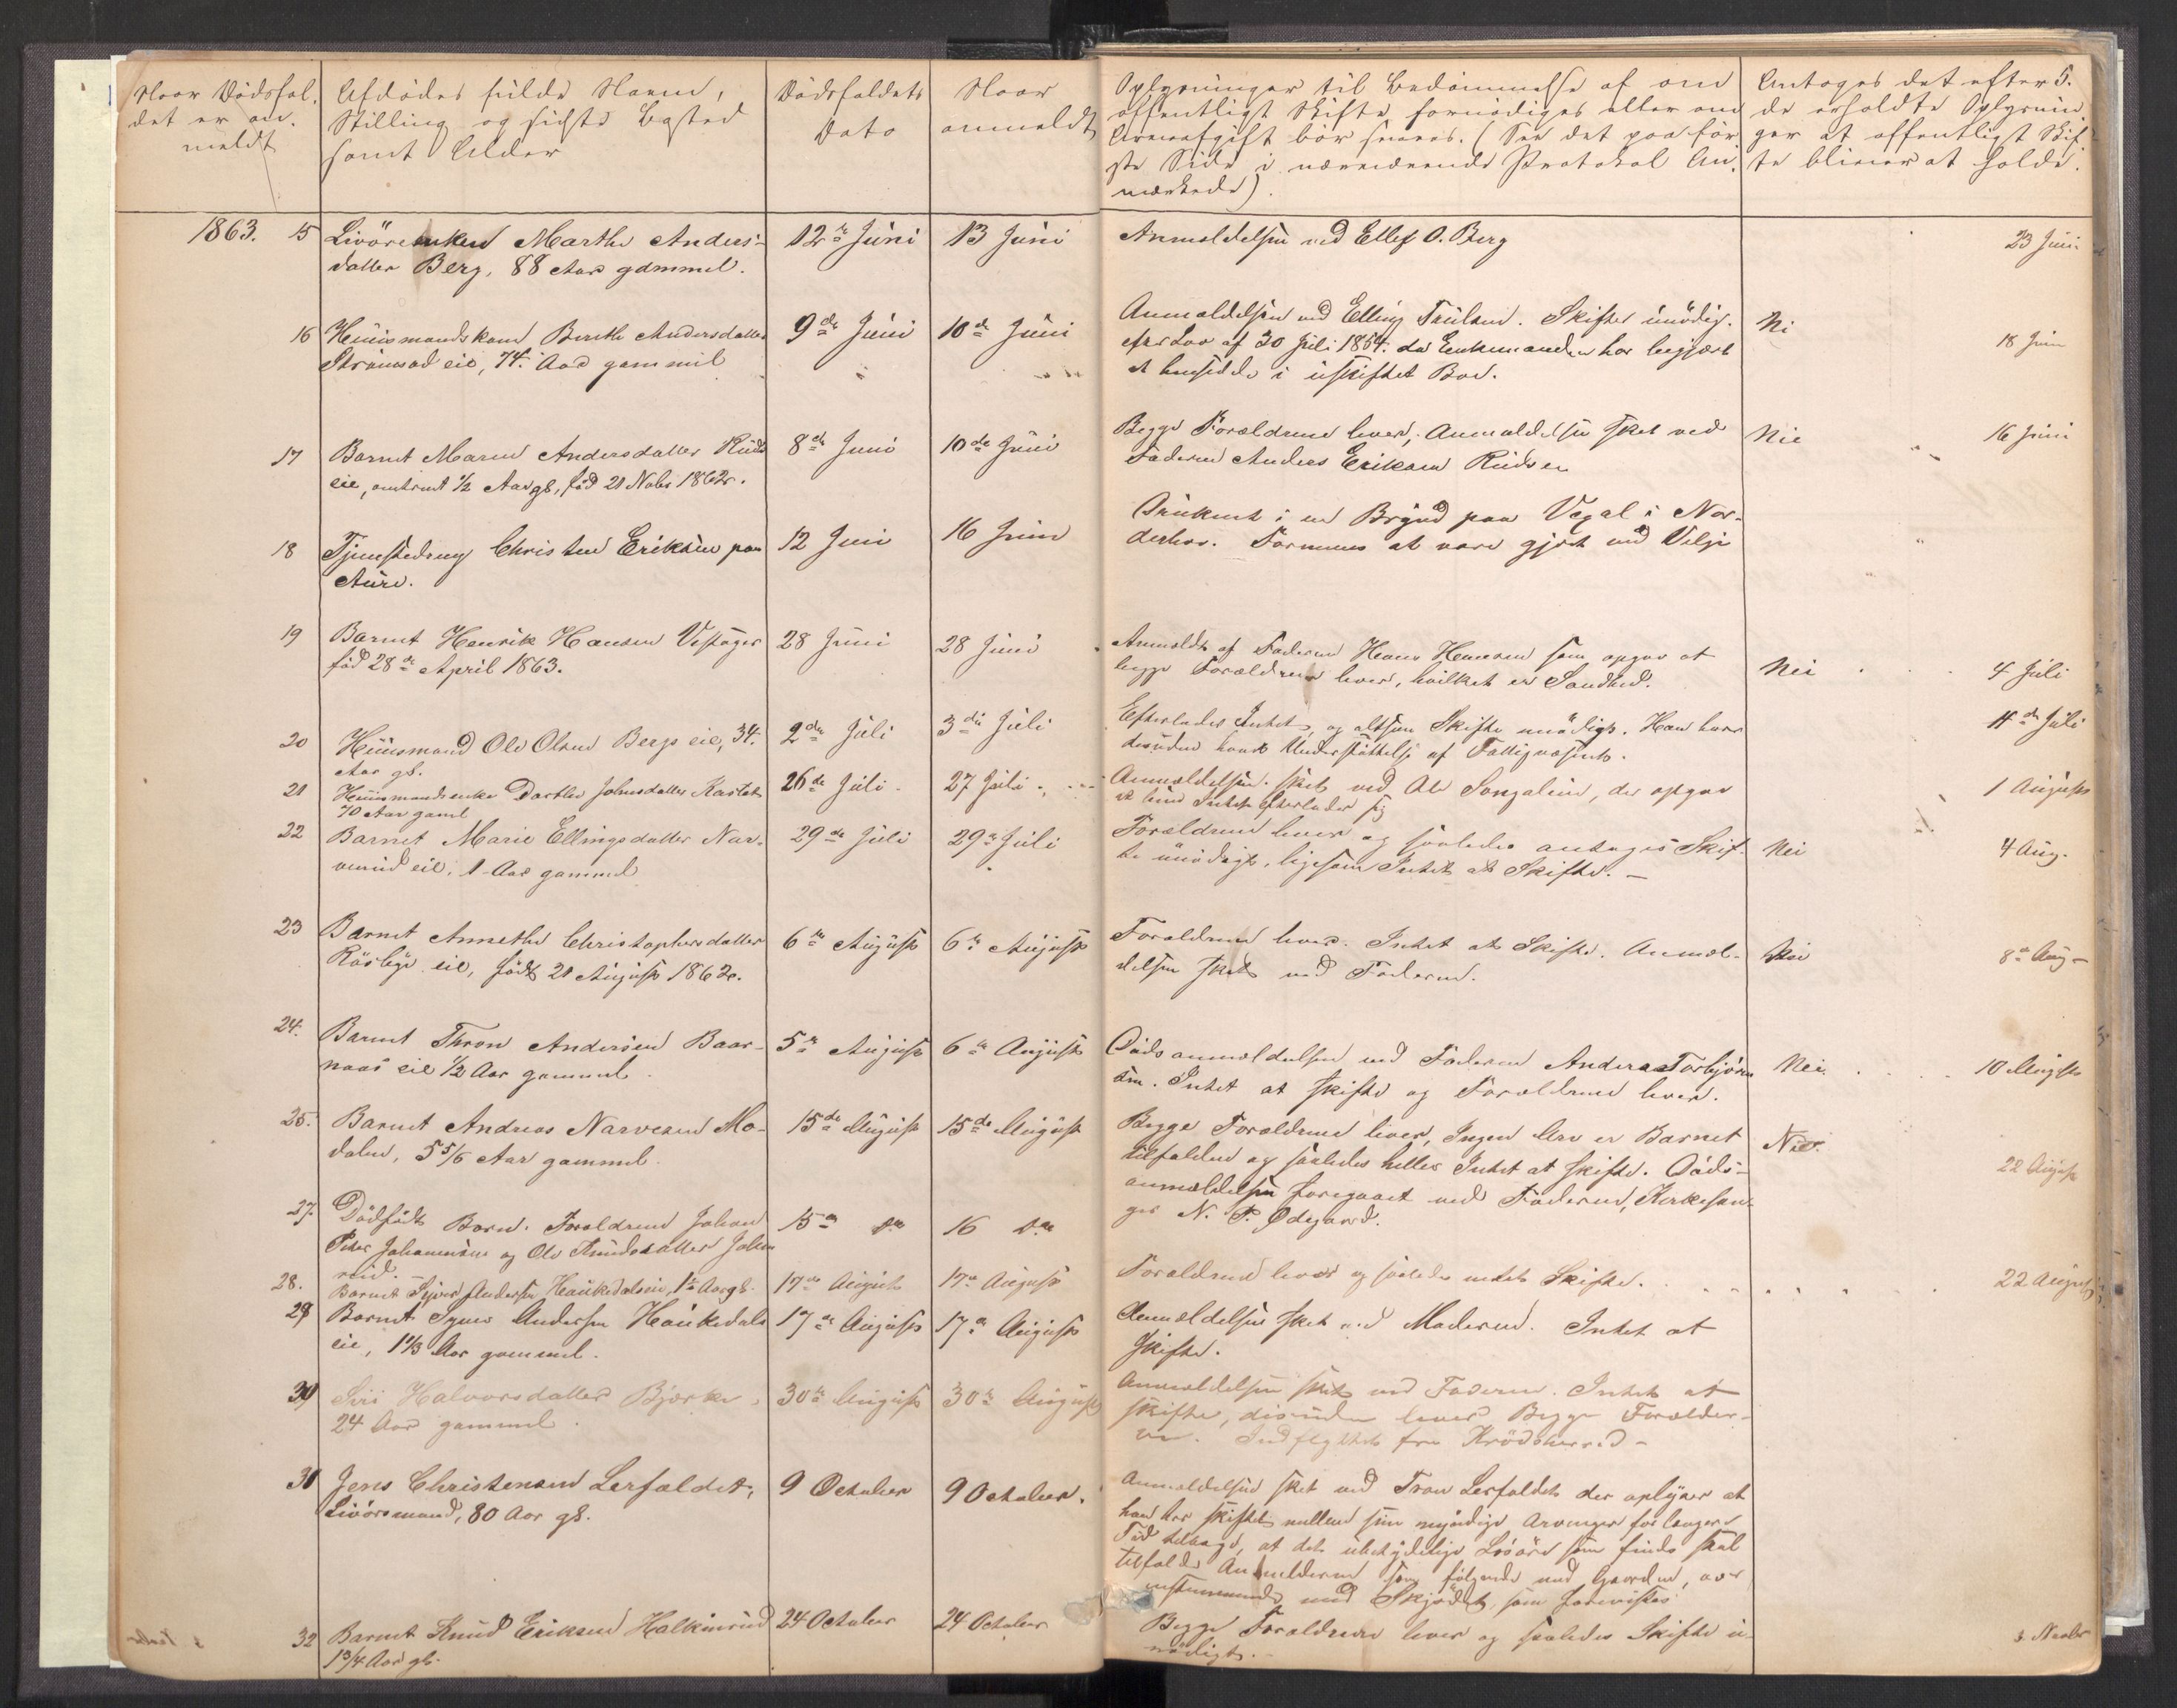 Naar Dödsfal-
det er an-
meldt
Afdödes fulde Navn,
Stilling og sidste Bosted
samt Alder
Dödsfaldets
Dato
Naar
anmeldt
Oplysninger til Bedömmelse af om
offentligt Skifte fornödiges eller om
Arveafgift bör svares. (See det paa för-
ste Side i nærværende Protokol An-
mærkede).
Antages det efter 5.
de erholdte Oplysnin-
ger at offentligt Skif-
te bliver at holde.
1863. 15 Livöreenken Marthe Anders-
datter Berg, 88 Aar gammel.
12te Juni
13 Juni
Anmeldelsen ved Ellef O. Berg
23 Juni
16 Huusmandskone Berthe Andersdatter
eie, 74 Aar gammel
9de Juni
10de Juni
Anmeldelsen ved Elling. Skiftet unödig.
efter Lov af 30 Juli 1854. da Enkemanden har begjært
at hensidde i uskiftet Bo.
Nei
18 Juni
17 Barnet Maren Andersdatter Ruds
eie, omtrent 1/2 Aar gl., föd 21 Novbr 1862.
8de Juni
10de Juni
Begge Forældrene lever, Anmeldelsen skeet ved
Faderen Anders Eriksen Rudseie
Nei
16 Juni
18 Tjenestedreng Christen Eriksen paa
Aure.
12 Juni
16 Juni
Druknet i en Brönd paa Vegal i Nor-
derhov. Formenes at være gjort med Vilje
19 Barnet Henrik Hansen Vesager
föd 28de April 1863.
28 Juni
28 Juni
Anmeldt af Faderen Hans Hansen som opgav at
begge Forældrene lever, hvilket er Sandhed.
Nei
4 Juli
20 Huusmand Ole Olsen Bergs eie, 34.
Aar gl.
2den Juli
3die Juli
Efterlader Intet, og altsaa Skifte unödigt. Han har
desuden havt Understöttelse af Fattigvæsenet.
11te Juli
21 Huusmandsenke Dorthe Johnsdatter
70 Aar gaml
26de Juli
27 Juli
Anmeldelsen skeet ved Ole, der opgav
at hun Intet efterlader sig
1 August
22 Barnet Marie Ellingsdatter Nar-
verud eie, 1 Aar gammel
29de Juli
29de Juli
Forældrene lever og saaledes antages Skif-
te unödigt, ligesom Intet at Skifte. —
Nei
4 Aug.
23 Barnet Annethe Christophersdatter
eie, födt 21 August 1862.
6te August
6te August
Forældrene lever. Intet at Skifte. Anmel-
delsen skeet ved Faderen.
Nei
8de Aug
24. Barnet Thron Andersen Baar-
naas eie 1/2 Aar gammel.
5te August
6te August
Dödsanmeldelsen ved Faderen Anders Torbjörn-
sen. Intet at skifte og Forældrene lever.
Nei.
10 August
25. Barnet Andreas Narvesen Mo-
dalen, 5 5/6 Aar gammel.
15de August
15de August
Begge Forældrene lever, Ingen Arv er Barnet
tilfalden og saaledes heller Intet at skifte. Döds-
anmeldelsen foregaaet ved Faderen, Kirkesan-
ger N. P. Ødegaard.
Nei.
22 August
27. Dödfödt Barn. Forældrene Johan
Peter Johannesen og Ole Knudsdatter
15de do
16 do
28. Barnet Andersen Haukedalseie, Aar gl.
17de August
17de August
Forældrene lever og saaledes intet Skifte.
22 August
29 Barnet Andersen Haukedals
eie, 1 1/3 Aar gammel.
17de August
17de August
Anmeldelsen skeet ved Moderen. Intet at
skifte.
30 Siri Halvorsdatter Bjerke,
24 Aar gammel.
30te August
30te August
Anmeldelsen skeet ved Faderen. Intet at
skifte, desuden lever Begge Forælder-
ne. Indflyttet fra Krödsherred —
31 Jens Christensen Lerfaldet,
Livörsmand, 80 Aar gl.
9 October
9 October.
Anmeldelsen skeet ved Tron Lerfaldet der oplyser at
han har skiftet mellem sine myndige Arvinger for længere
Tid tilbage, at det ubetydelige Lösöre som findes skal
tilfalde Anmelderen som fölgende med Gaarden, over-
ensstemmende med Skjödet, som forevistes
32 Barnet Knud Eriksen Halkinrud
1 3/4 Aar gl.
24 October
24 October
Begge Forældrene lever og saaledes Skifte u-
nödigt.
3 Novbr